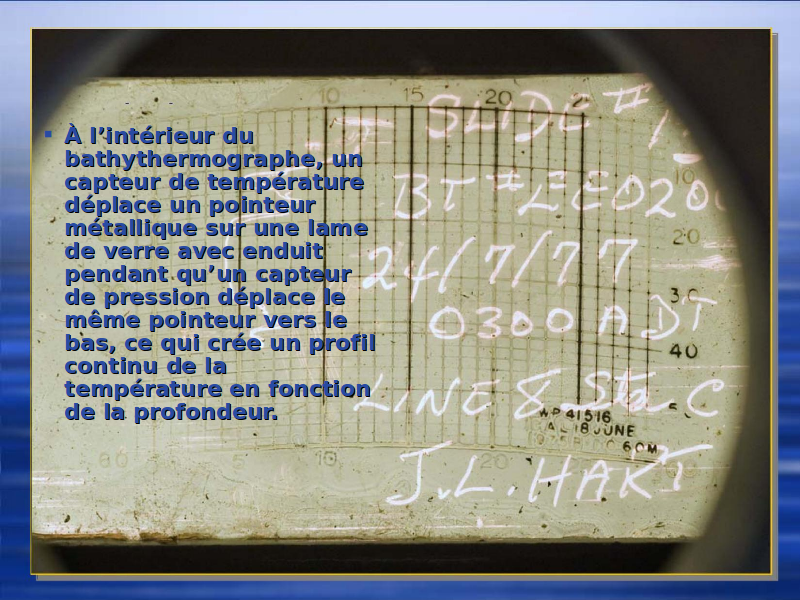 À l’intérieur du
bathythermographe, un
capteur de température
déplace un pointeur
métallique sur une lame
de verre avec enduit
pendant qu’un capteur
de pression déplace le
même pointeur vers le
bas, ce qui crée un profil
continu de la
température en fonction
de la profondeur.
10 15 20
SLIDE # 1
BT #
10
20
24/7/77
30
0300 ADT
40
LINE 8 Sta C
WP 41516
CAL 18 JUNE
60M
10 20
J.L. HART